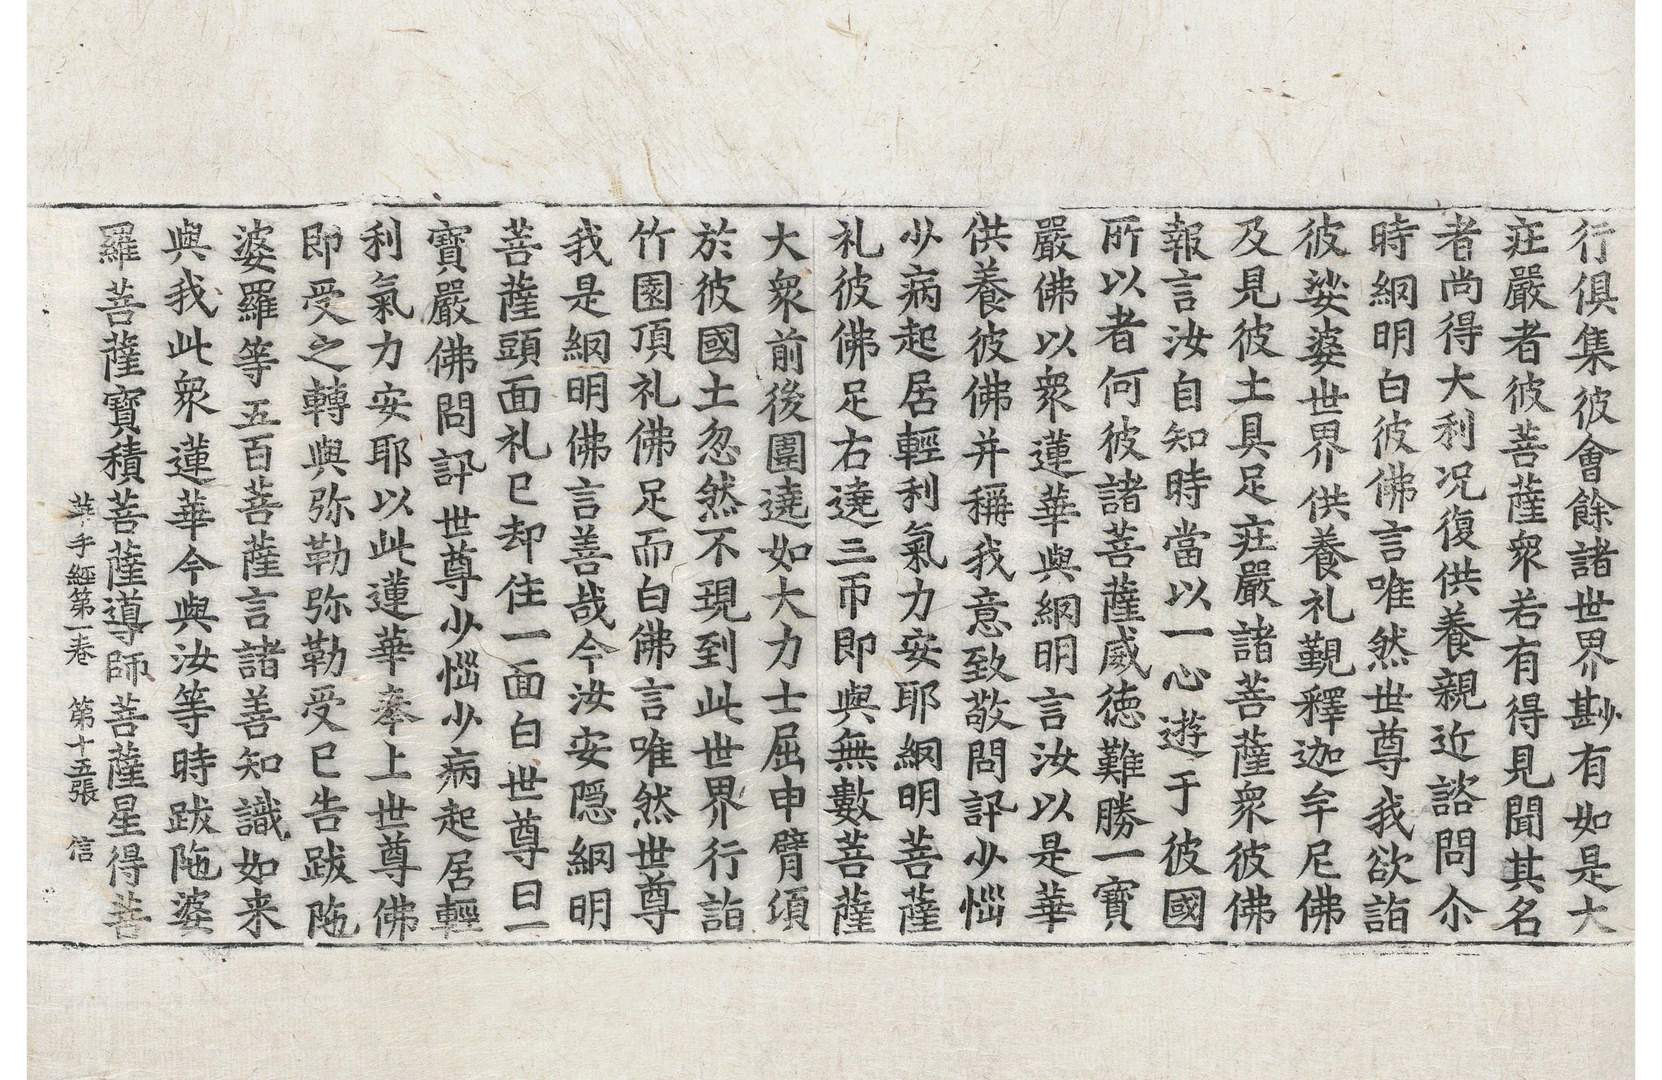 行俱集彼會餘諸世界尠有如是大
㽵嚴者彼菩薩衆若有得見聞其名
者尚得大利况復供養親近諮問尒
時網明白彼佛言唯然世尊我欲詣
彼娑婆世界供養礼覲釋迦牟尼佛
及見彼土具足㽵嚴諸菩薩衆彼佛
報言汝自知時當以一心遊于彼國
所以者何彼諸菩薩威德難勝一寶
嚴佛以衆蓮華與網明言汝以是華
供養彼佛并稱我意致敬問訊少惱
少病起居輕利氣力安耶網明菩薩
礼彼佛足右遶三帀即與無數菩薩
大衆前後圍遶如大力士屈申臂頃
於彼國土忽然不現到此世界行詣
竹園頂礼佛足而白佛言唯然世尊
我是網明佛言善哉今汝安隱網明
菩薩頭面礼已却住一面白世尊曰一
寶嚴佛問訊世尊少惱少病起居輕
利氣力安耶以此蓮華奉上世尊佛
即受之轉與弥勒弥勒受已告跋陁
婆羅等五百菩薩言諸善知識如来
與我此衆蓮華今與汝等時跋陁婆
羅菩薩寶積菩薩導師菩薩星得菩
華手經第一卷 第十五張 信